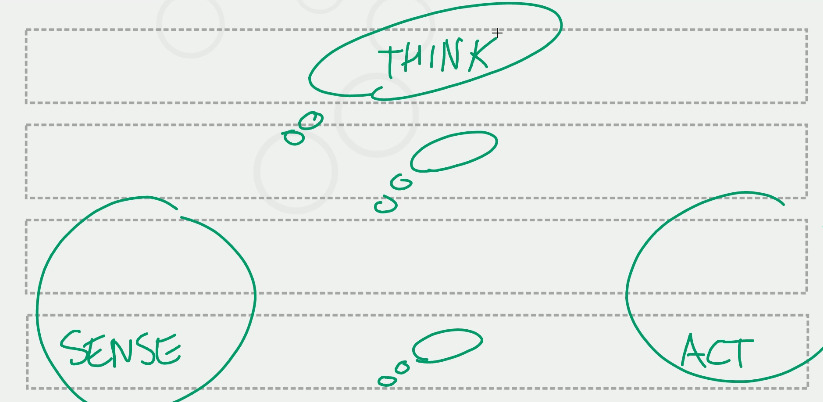 THINK
SENSE
ACT